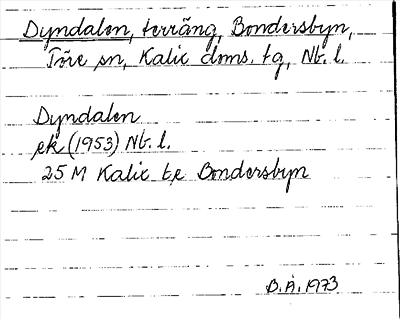 Dyndalen, terräng, Bondersbyn,
Töre sn, Kalix dms. tg, Nb. l.
Dyndalen
ek (1953) Nb. l.
25 M Kalix
Bondersbyn
B.Å. 1973